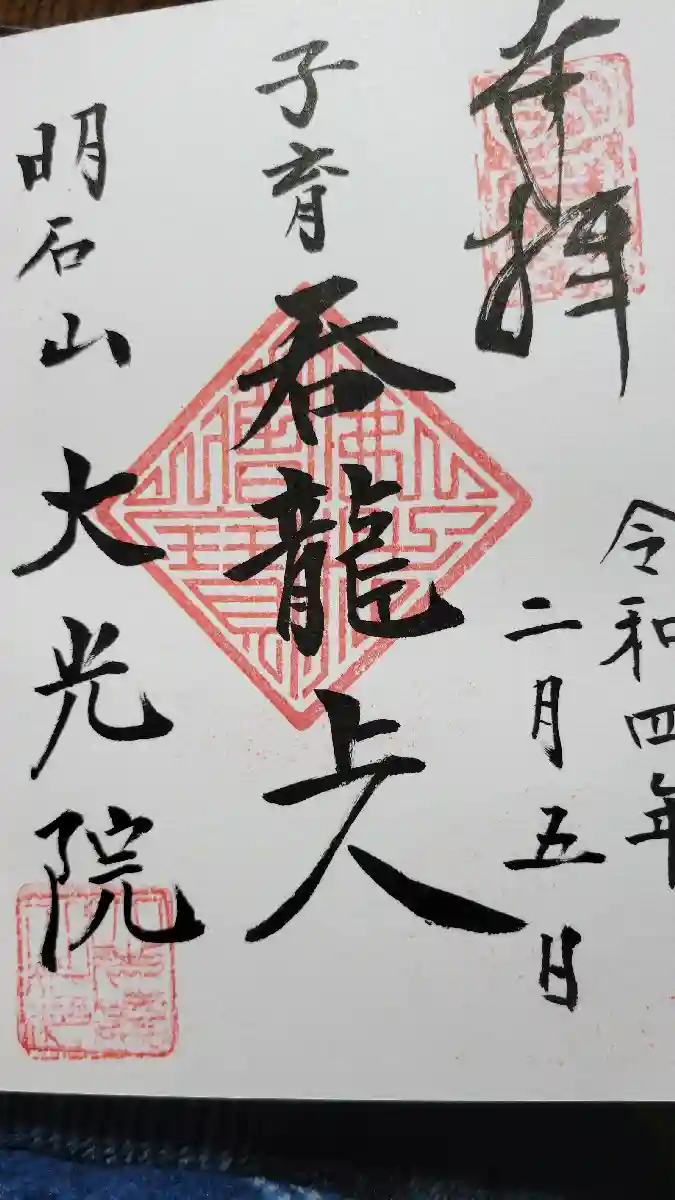 奉拝
令和四年
二月五日
子育
呑龍上人
明石山大光院